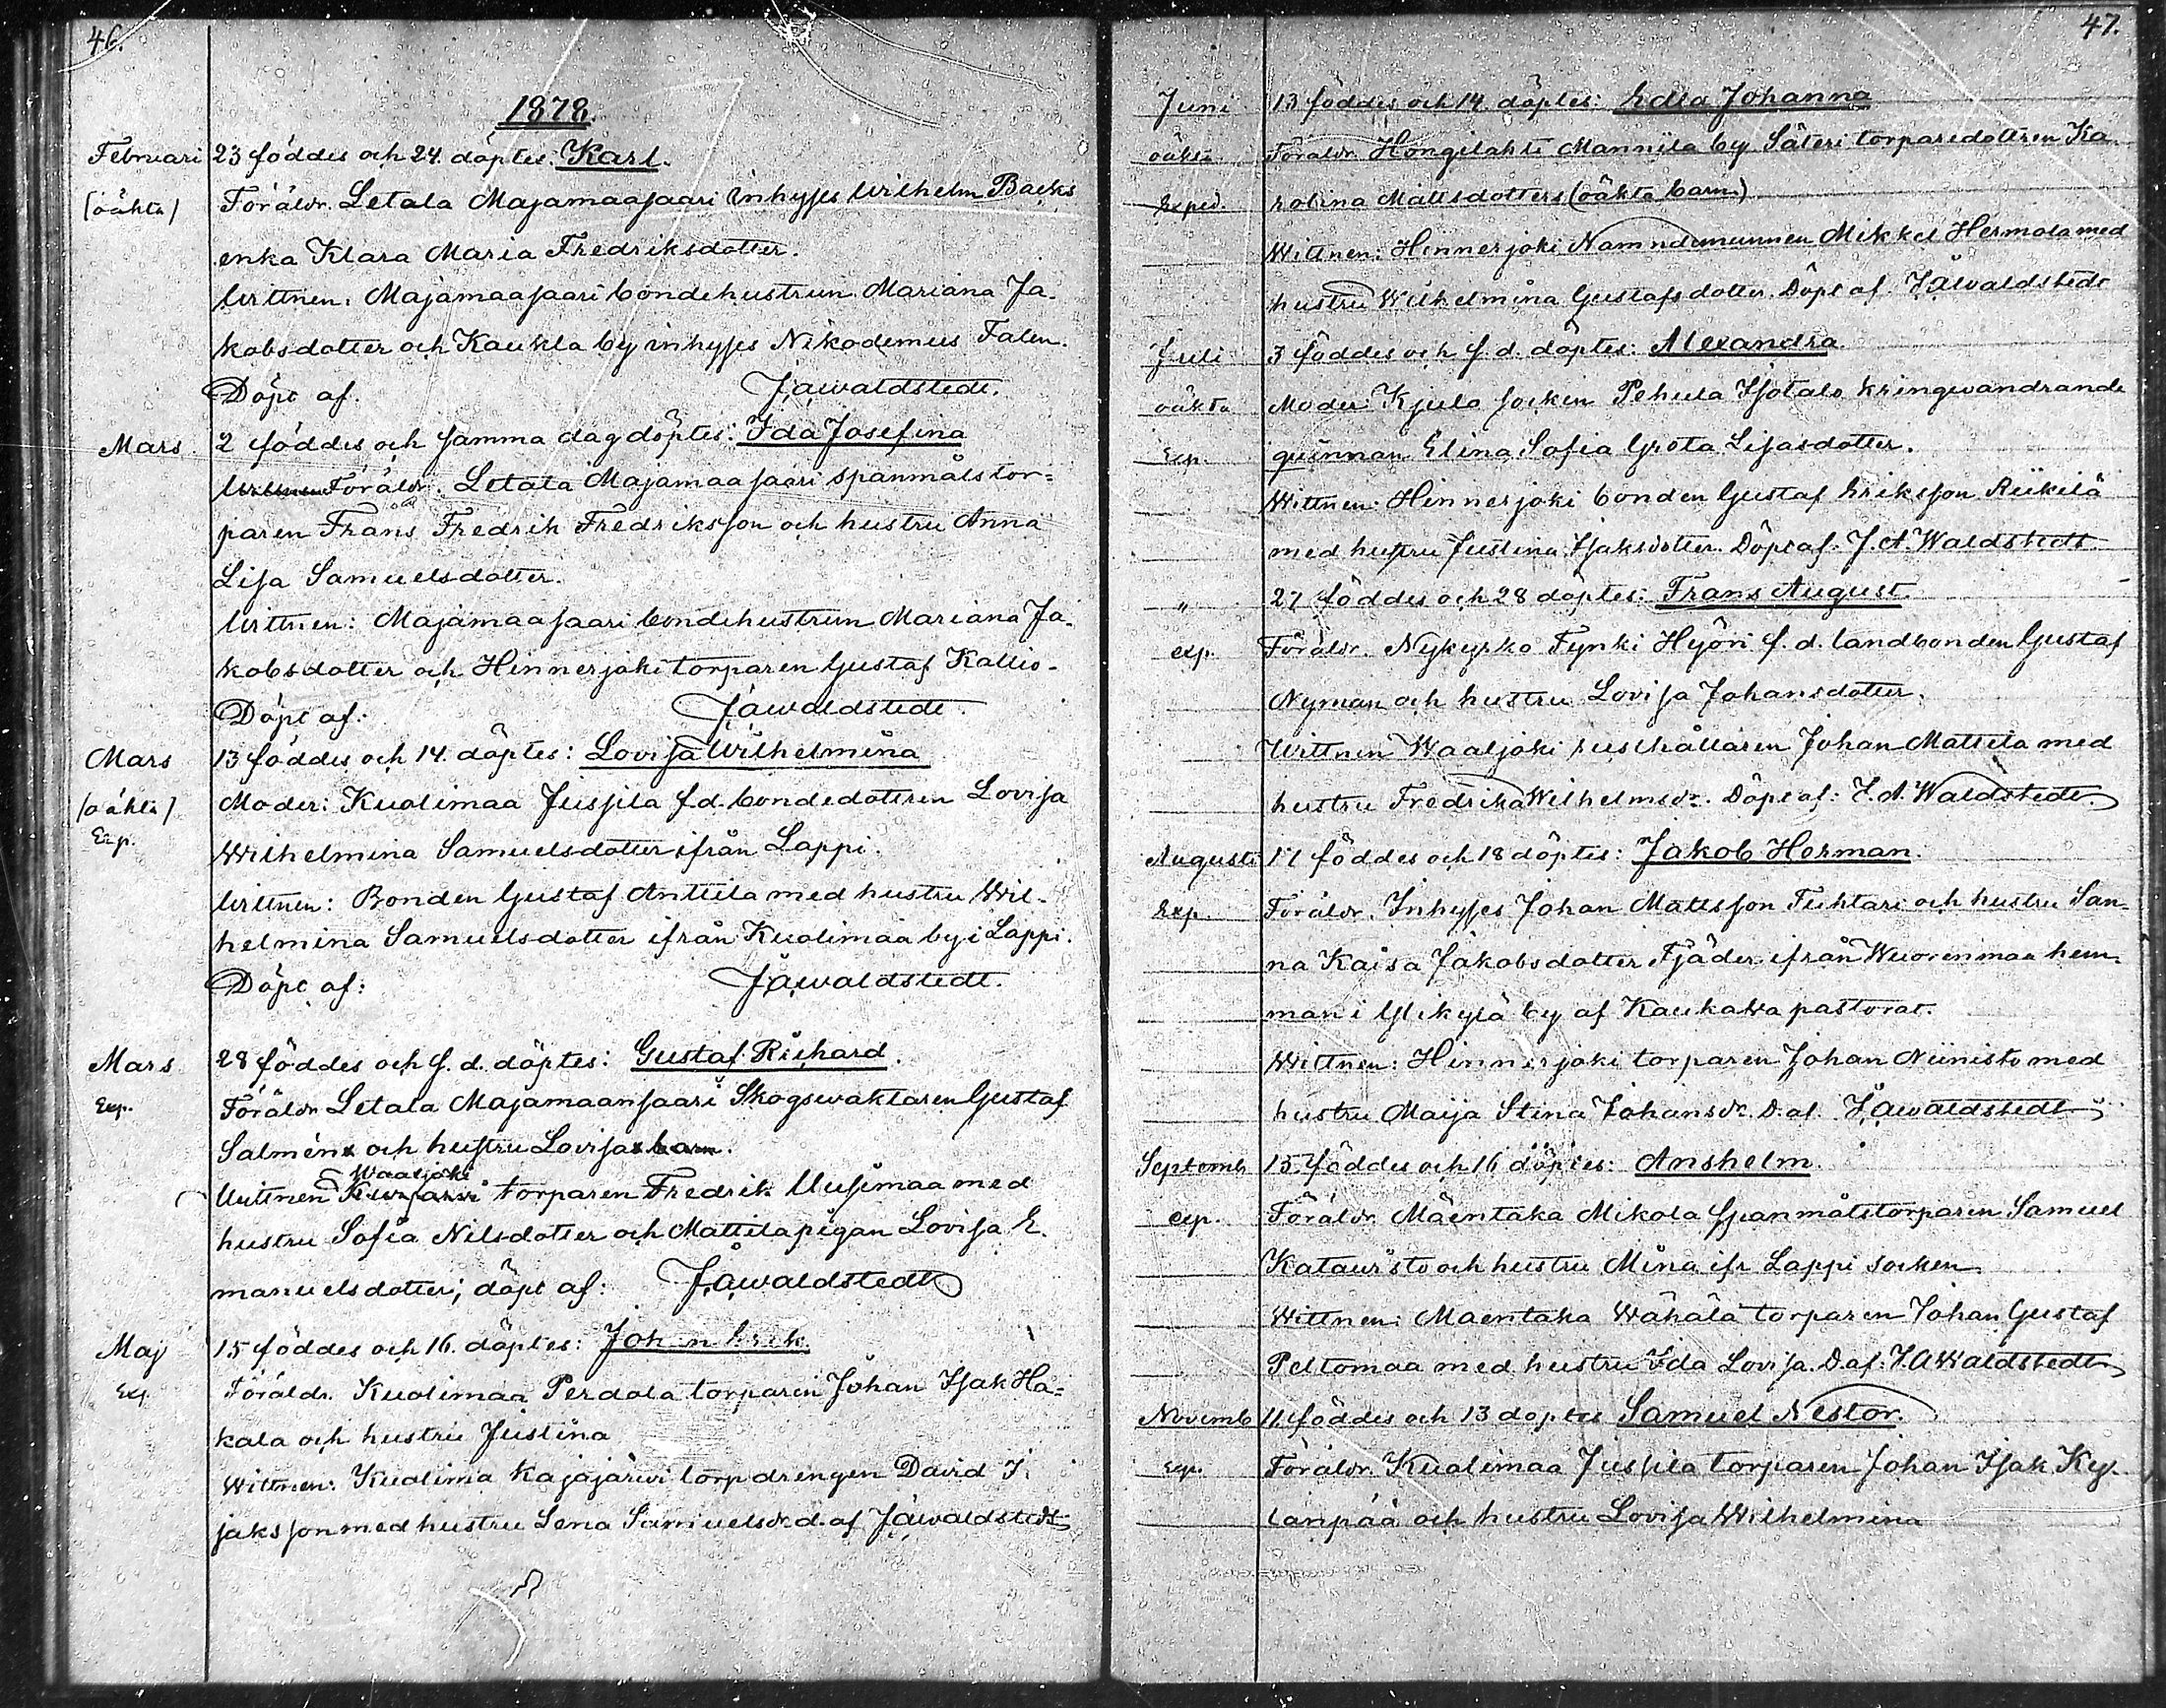 46.
1878.
Februari 23 föddes och 24. döptes: Karl.
(oäkta) Föräldr. Letala Majamaasaari inhyses Wilhelm Backs
enka Klara Maria Fredriksdotter.
Wittnen: Majamaasaari bondehustrun Mariana Ja-
kobsdotter och Kaukla by inhyses Nikodemus Falen.
Döpt af. J.A.Waldstedt.
Mars 2 föddes och samma dag döptes: Ida Josefina
Föräldr. Letala Majamaasaari spanmålstor=
paren Frans Fredrik Fredriksson och hustru Anna
Lisa Samuelsdotter.
Wittnen: Majamaasaari bondehustrun Mariana Ja-
kobsdotter och Hinnerjoki torparen Gustaf Kallio-
Döpt af: J.A.Waldstedt.
Mars 13 föddes och 14. döptes: Lovisa Wilhelmina
(oäkta) Moder: Kuolimaa Jussila f.d. bondedottren Lovisa
Exp. Wilhelmina Samuelsdotter ifrån Lappi.
Wittnen: Bonden Gustaf Anttila med hustru Wil-
helmina Samuelsdotter ifrån Kuolimaa by i Lappi.
Döpt af: J.A.Waldstedt.
Mars 28 föddes och s.d. döptes: Gustaf Richard.
Exp. Föräldr Letala Majamaansaari Skogswaktaren Gustaf
Salmén och hustru Lovisa barn.
Waaljoki
Wittnen torparen Fredrik Uusimaa med
hustru Sofia Nilsdotter och Mattila pigan Lovisa E.
manuelsdotter; döpt af: J.A.Waldstedt
Maj 15 föddes och 16. döptes: Joh n Erik.
Exp Föräldr. Kuolimaa Perdola torparen Johan Isak Ha=
kala och hustru Justina
Wittnen: Kuolima Kajajärwi torpdrengen David I.
saksson med hustru Lena Samuelsdr. d. af J.A.Waldstedt
47.
Juni 13 föddes och 14. döptes: Edla Johanna
oäkta Föräldr. Hongilahti Mannila by Säteri torparedottren Ka-
Exped. rolina Mattsdotters (oäkta barn)
Wittnen: Hinnerjoki Nämndemannen Mikkel Hermola med
hustru Wilhelmina Gustafsdotter. Döpt af J.A.Waldstedt
Juli 3 föddes och s.d. döptes: Alexandra
oäkta Moder: Kjulo socken Pehula Isotalo kringwandrande
Exp. qvinnan Elina Sofia Greta Lisasdotter.
Wittnen: Hinnerjoki bonden Gustaf Eriksson Riikilä
med hustru Justina Isaksdotter. Döpt af: J.A. Waldstedt
" 27 föddes och 28 döptes: Frans August.
exp. Föräldr. Nykyrko Tynki Hyöri f.d. landbonden Gustaf
Nyman och hustru Lovisa Johansdotter.
Wittnen Waaljoki rusthållaren Johan Mattila med
hustru Fredrika Wilhelmsdr. Döpt af: J.A. Waldstedt.
Augusti 17 föddes och 18 döptes: Jakob Herman.
Exp. Föräldr. Inhyses Johan Mattsson Tuhtari och hustru San=
na Kaisa Jakobsdotter Fjäder ifrån Wuorenmaa hem-
man i Ylikylä by af Kaukawa pastorat.
Wittnen: Hinnerjoki torparen Johan Niinistö med
hustru Maija Stina Johansdr. D. af J.A.Waldstedt
Septemb 15 föddes och 16 döptes: Anshelm.
exp. Föräldr. Mäentaka Mikola spanmålstorparen Samuel
Katawisto och hustru Mina ifr Lappi socken
Wittnen: Mäentaka Wähälä torparen Johan Gustaf
Peltomaa med hustru Ida Lovisa. D. af: J.A.Waldstedt
Novemb 11. föddes och 13 döptes Samuel Nestor.
exp. Föräldr. Kuolimaa Jussila torparen Johan Isak Ky-
länpää och hustru Lovisa Wilhelmina